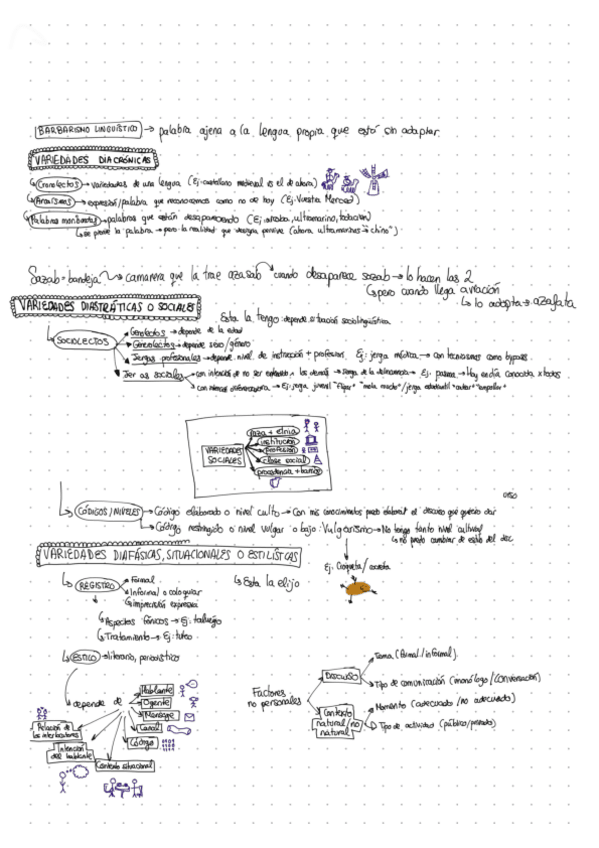 BARBARISMO LINGUÍSTICO → palabra ajena a la lengua propia que está sin adaptar.
VARIEDADES DIACRÓNICAS
Cronolectos → variedades de una lengua (Ej: castellano medieval vs el de ahora)
Arcaísmos → expresión/palabra que reconocemos como no de hoy (Ej: Vuestra Merced)
Palabras moribundas → palabras que están desapareciendo (Ej: ultramarino,
se pierde la palabra → pero la realidad que designa pervive (ahora ultramarinos → chino").
Sazab = bandeja camarera que la trae azasab cuando desaparece sazab → lo hacen las 2
pero cuando llega aviación
lo adopta → azafata
VARIEDADES DIASTRÁTICAS O SOCIALES
Esta la tengo: depende situación sociolingüística
SOCIOLECTOS
→ depende de la edad
→ depende sexo/género
Jergas profesionales → depende nivel de instrucción + profesión. Ej: jerga médica → con tecnicismos como bypass.
Jergas sociales
con intención de no ser entendido x los demás → Jerga de la delincuencia → Ej. pasma → Hoy en día conocida x todos
con intención diferenciadora → Ej: jerga juvenil "flipar" "mola mucho" / jerga estudiantil "catear" "empollar"
VARIEDADES SOCIALES
raza + etnia
institución
profesión
clase social
procedencia + barrio
CÓDIGOS/NIVELES → Código elaborado o nivel culto → Con mis conocimientos puedo elaborar el discurso que quiero dar
Código restringido o nivel vulgar o bajo: Vulgarismo → No tengo tanto nivel cultural
no puedo cambiar de estilo del
VARIEDADES DIAFÁSICAS, SITUACIONALES O ESTILÍSTICAS
Ej: Croqueta/
REGISTRO
Formal
Informal o coloquial
imprecisión expresiva
Esta la elijo
Aspectos fónicos → Ej:
Tratamiento → Ej: tuteo
→ literario, periodístico
depende de
Hablante
Oyente
Mensaje
Canal
Código
Contexto situacional
Intención del hablante
Relación de los interlocutores
Factores no personales
DISCURSO
Tema (formal/informal)
Tipo de comunicación (monólogo/conversación)
Contexto natural/no natural
Momento (adecuado/no adecuado)
Tipo de actividad (público/privado)